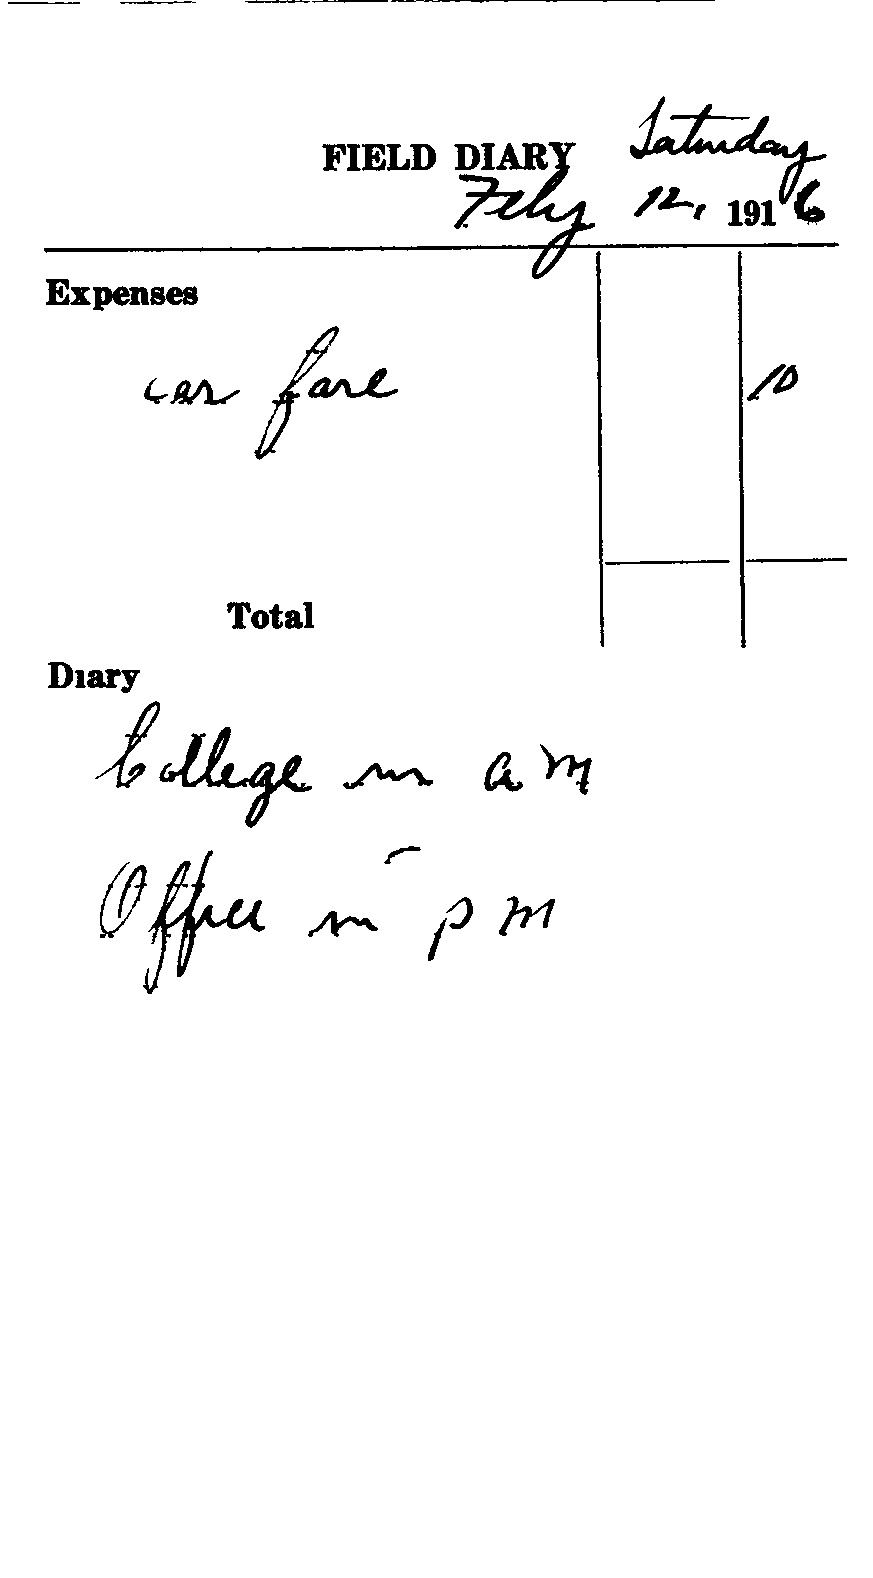 FIELD DIARY Saturday
Feby 12, 1916
Expenses
car fare 10
Total
Diary
College in a m
Office in p m